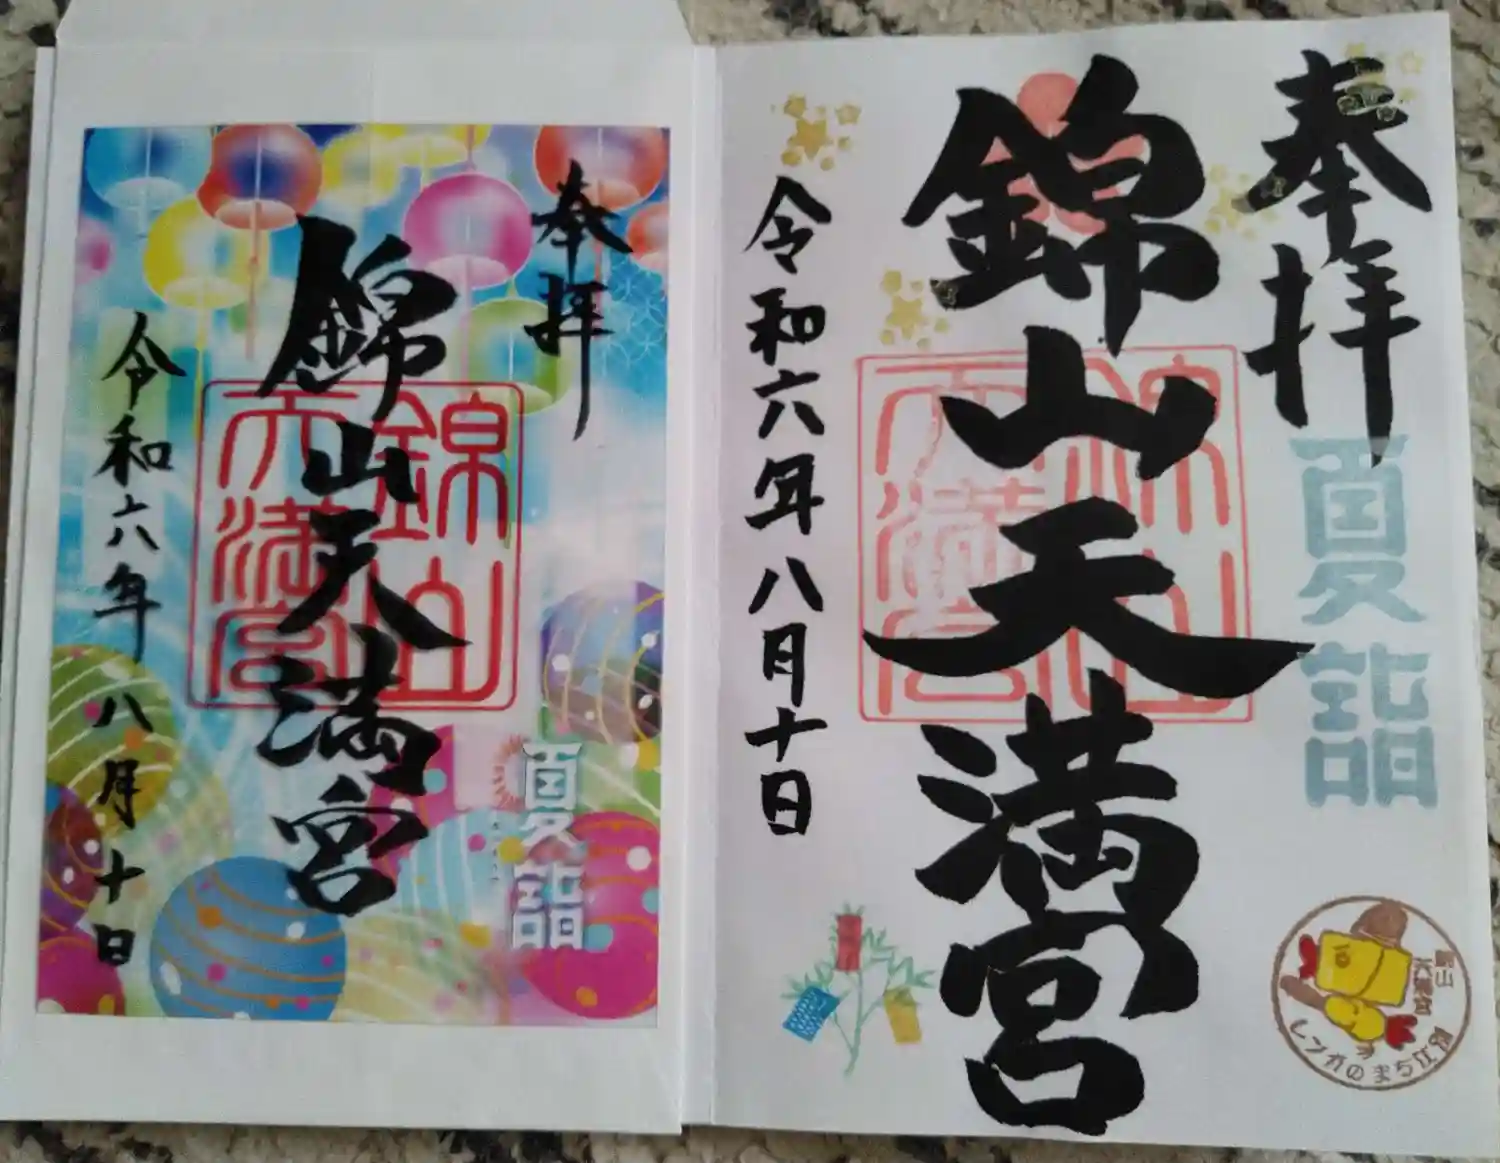 奉拝
錦山天満宮
令和六年八月十日
錦山
天満宮
夏詣
奉拝
錦山天満宮
令和六年八月十日
錦山
天満宮
夏詣
錦山
天満宮
レンガのまち江別